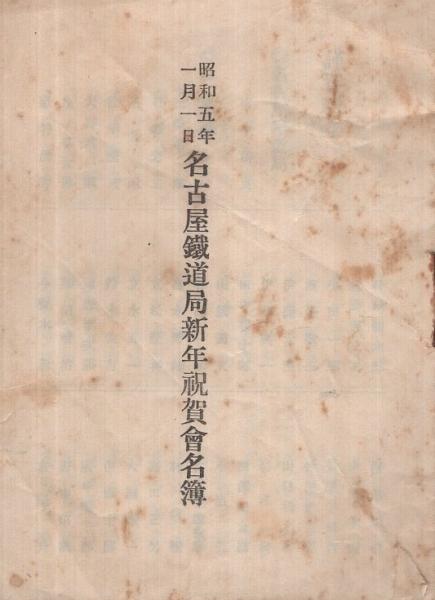 昭和五年
一月一日
名古屋鐵道局新年祝賀會名簿